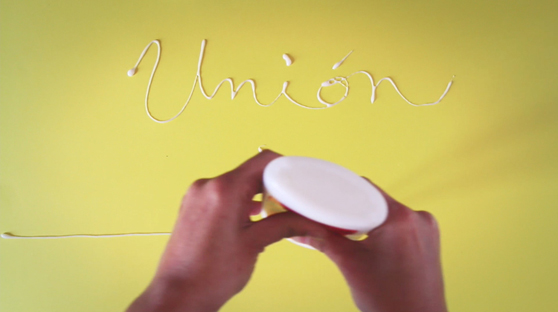 Unión